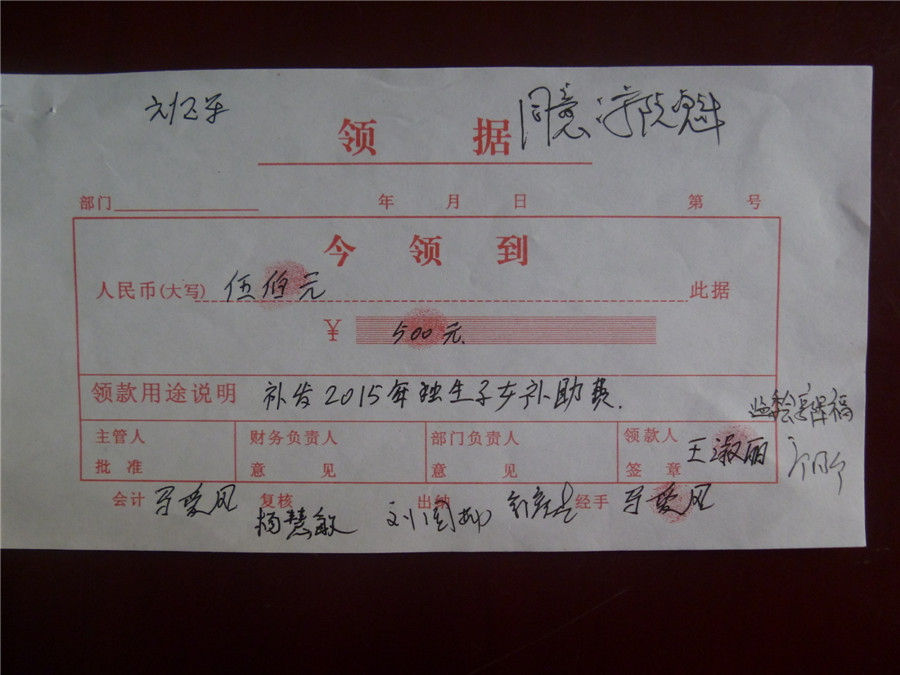 同意
领 据
部门 年 月 日 第 号
今 领 到
人民币(大写) 伍佰元 此据
¥ 500元.
领款用途说明 补发2015年独生子女补助费.
主管人 财务负责人 部门负责人 领款人
批 准 意 见 意 见 签 章 王淑丽
会计 马爱凤 复核 杨慧敏 出纳 经手 马爱凤